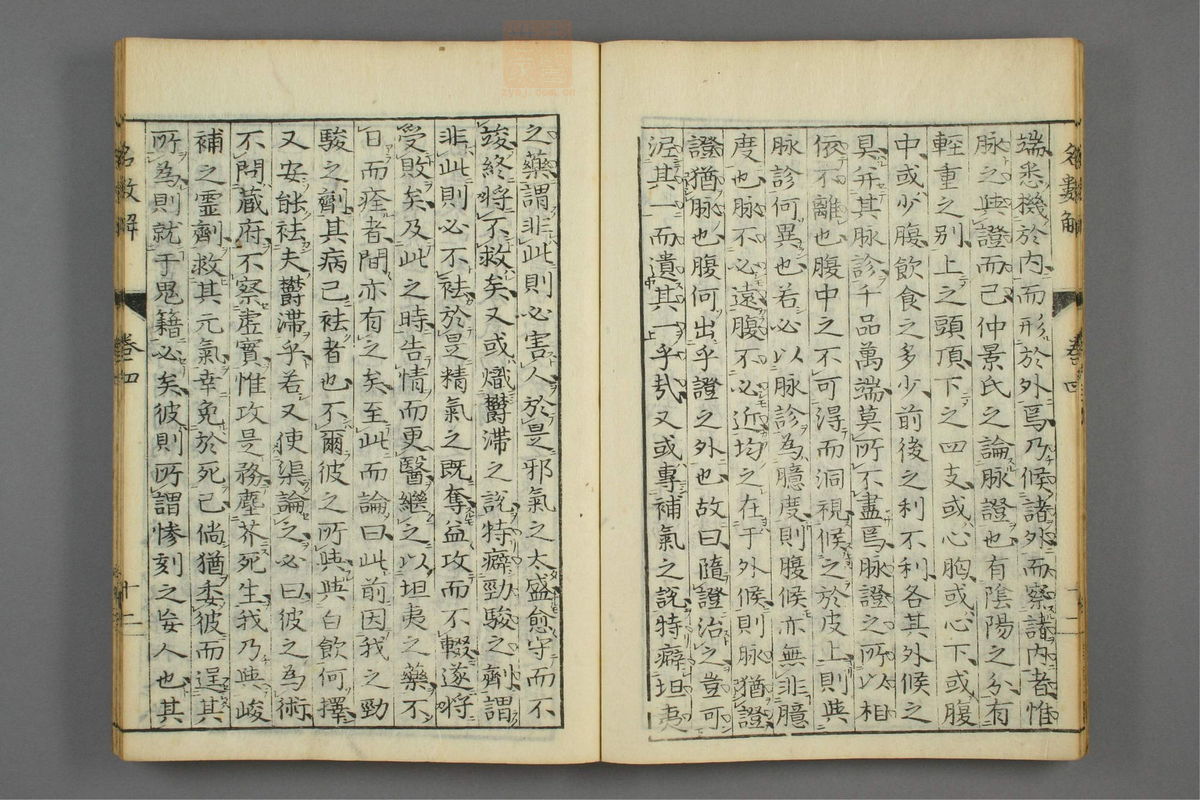 端悉機於內而形於外焉乃候諸外而察諸內者惟
脉之與證而已仲景氏之論脉證也有陰陽之分有
輕重之別上之頭頂下之四支或心胸或心下或腹
中或少腹飲食之多少前後之利不利各其外候之
具弁其脉診千品萬端莫所不盡焉脉證之所以相
依不離也腹中之不可得而洞視候之於皮上則與
脉診何異也若必以脉診為臆度則腹候亦無非臆
度也脉不必遠腹不必近均之在于外候則脉猶證
證猶脉也腹何出乎證之外也故曰隨證治之豈可
泥其一而遺其一乎哉又或專補氣之說特癖坦夷
之藥謂非此則必害人於是邪氣之太盛愈守而不
竣終將不救矣又或熾鬱滯之說特癖勁駿之劑謂
非此則必不袪於是精氣之既奪益攻而不輟遂將
受敗矣及此之時告情而更醫繼之以坦夷之藥不
日而痊者間亦有之矣至此而論曰此前因我之勁
駿之劑其病已袪者也不爾彼之所與與白飲何擇
又安能袪夫鬱滯乎若又使渠論之必曰彼之為術
不問藏府不察虛實惟攻是務塵芥死生我乃與峻
補之霊劑救其元氣幸免於死已倘猶委彼而逞其
所為則就于鬼籍必矣彼則所謂慘刻之妄人也其
名數解
卷四
十二